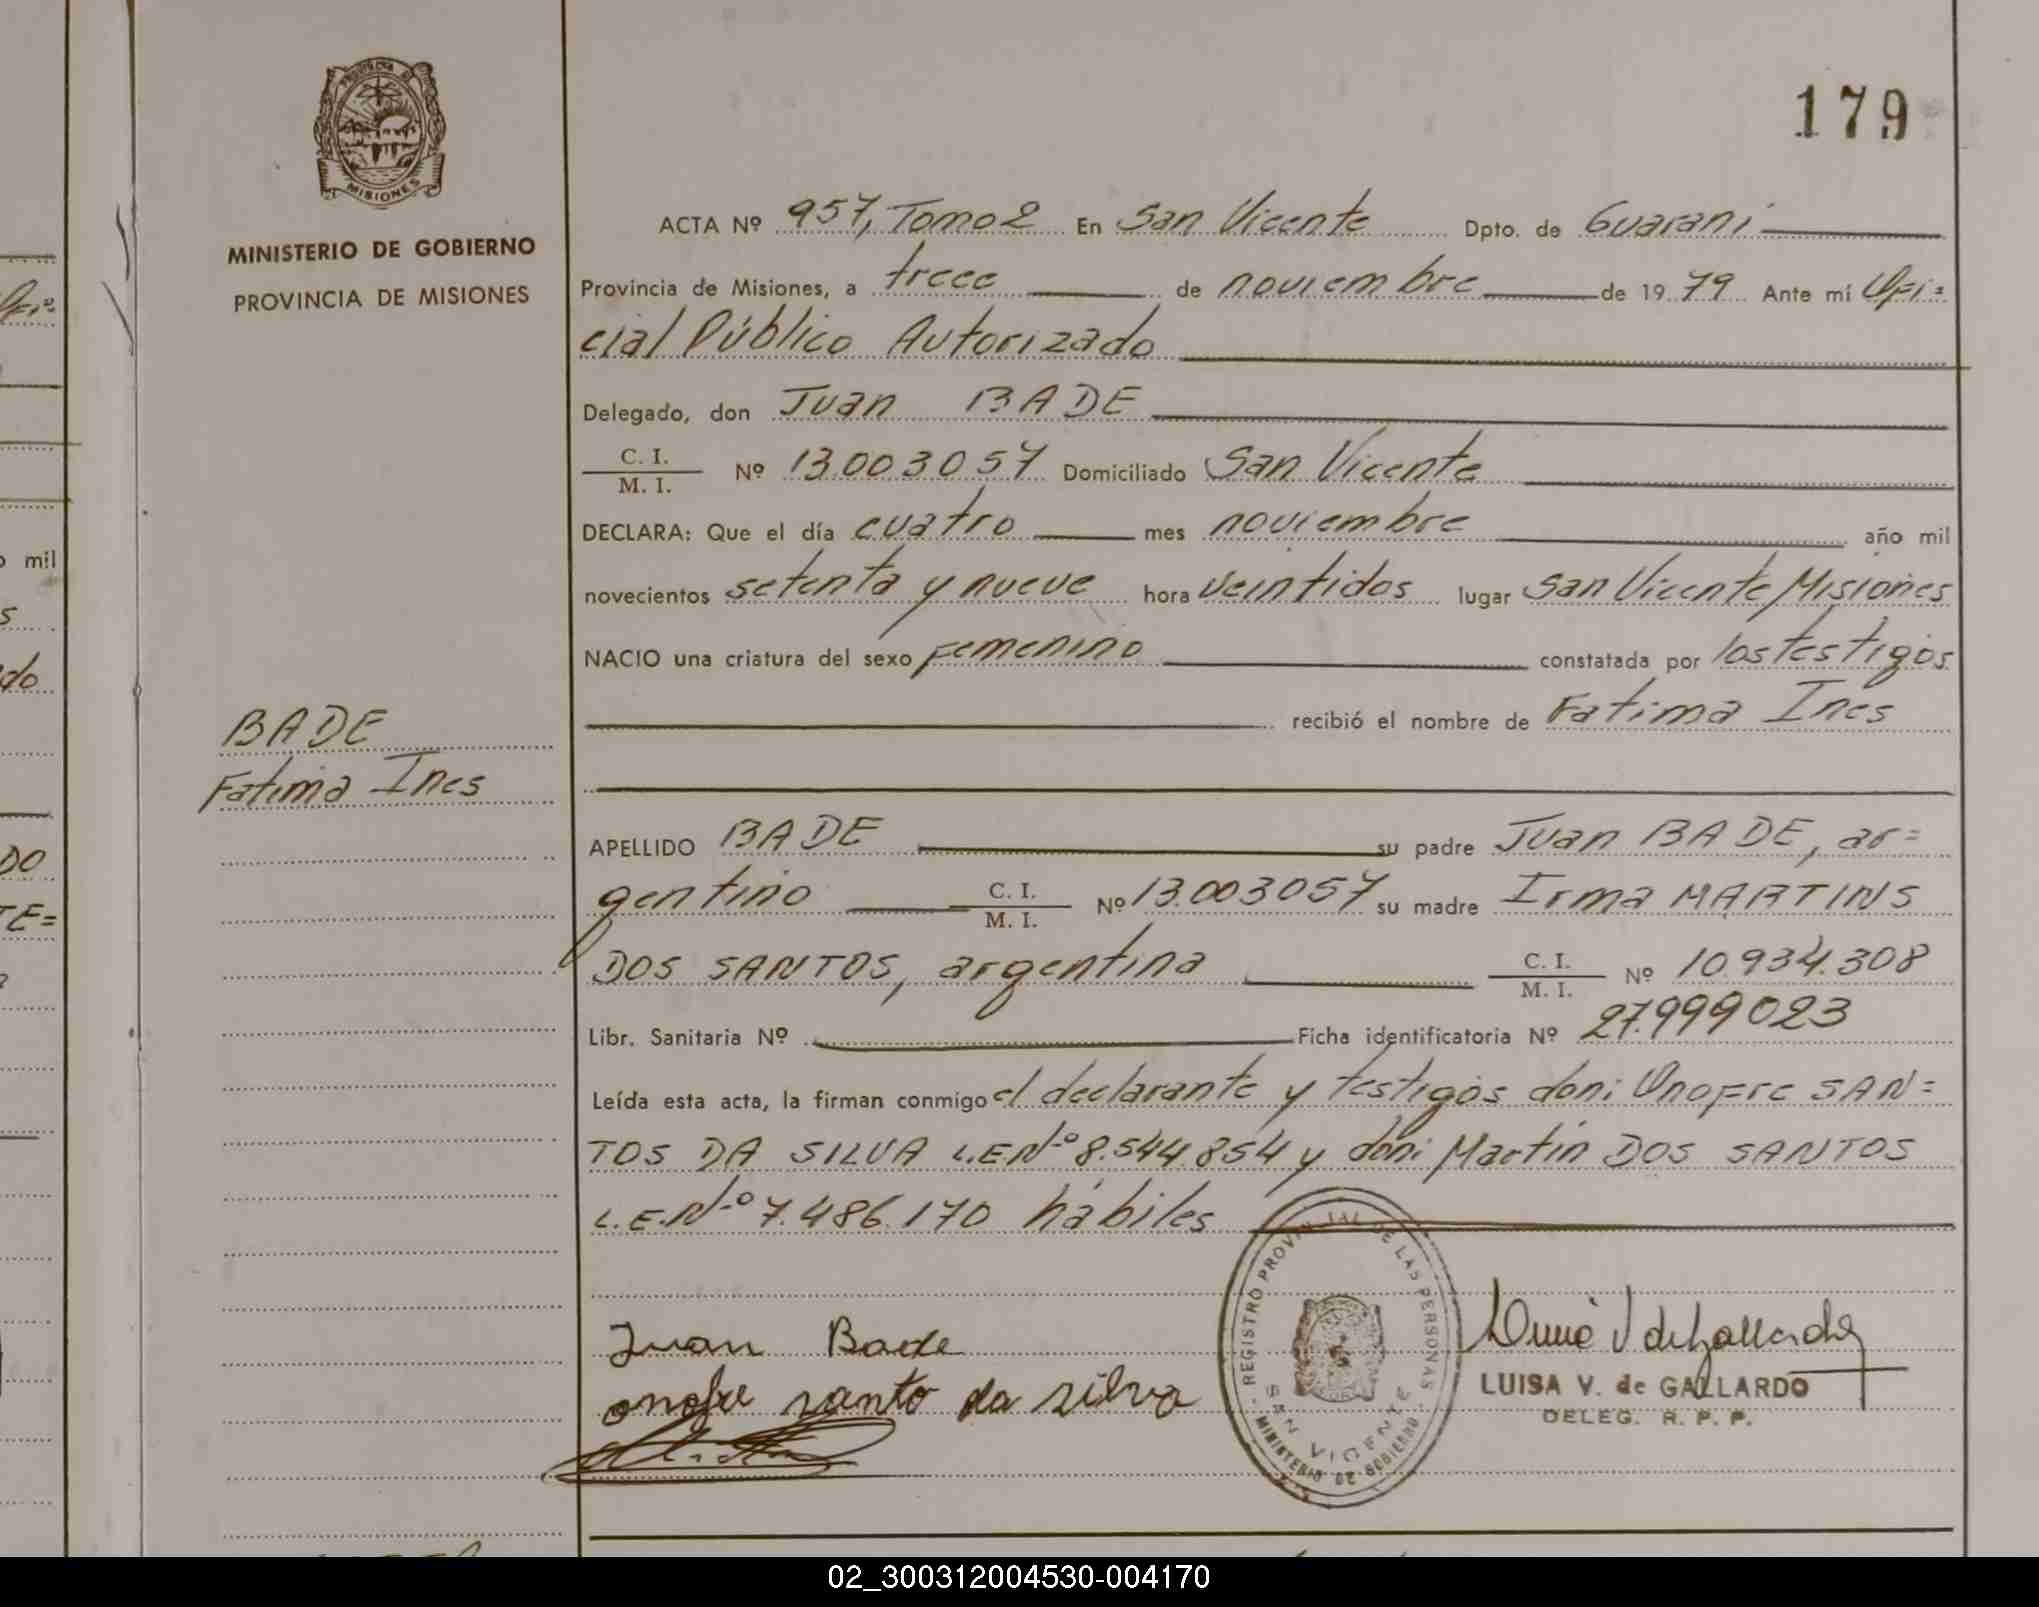 179
PROVINCIA DE
MISIONES
MINISTERIO DE GOBIERNO
PROVINCIA DE MISIONES
ACTA Nº 957, Tomo 2 En San Vicente Dpto. de Guarani
Provincia de Misiones, a trece de noviembre de 19 79 Ante mí Ofi=
cial Público Autorizado
Delegado, don Juan BADE
C. I.
M. I. Nº 13.003.057 Domiciliado San Vicente
DECLARA: Que el día cuatro mes noviembre año mil
novecientos setenta y nueve hora veintidos lugar San Vicente Misiones
NACIO una criatura del sexo femenino constatada por los testigos
recibió el nombre de Fatima Ines
BADE
Fatima Ines
APELLIDO BADE su padre Juan BADE, ar=
gentino C. I. M. I. Nº 13.003057 su madre Irma MARTINS
DOS SANTOS, argentina C. I. M. I. Nº 10.934.308
Libr. Sanitaria Nº Ficha identificatoria Nº 27.999023
Leída esta acta, la firman conmigo el declarante y testigos don: Onofre SAN=
TOS DA SILVA L.E.Nº 8.544.854 y don: Martín DOS SANTOS
L.E.Nº 7.486.170 hábiles
Juan Bade
onofre santo da silva
REGISTRO PROVINCIAL DE LAS PERSONAS
SAN VICENTE
MINISTERIO DE GOBIERNO
V de Gallardo
LUISA V. de GALLARDO
DELEG. R. P. P.
02_300312004530-004170